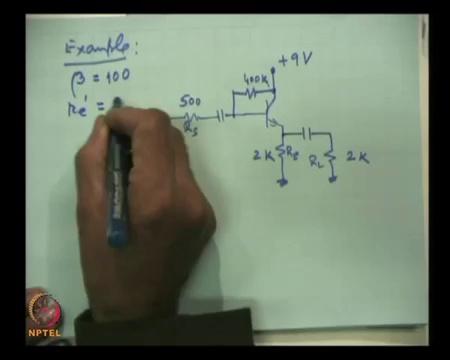 Example:
β = 100
re' =
500
Rs
400K
+9V
2K
RE
RL
2K
NPTEL